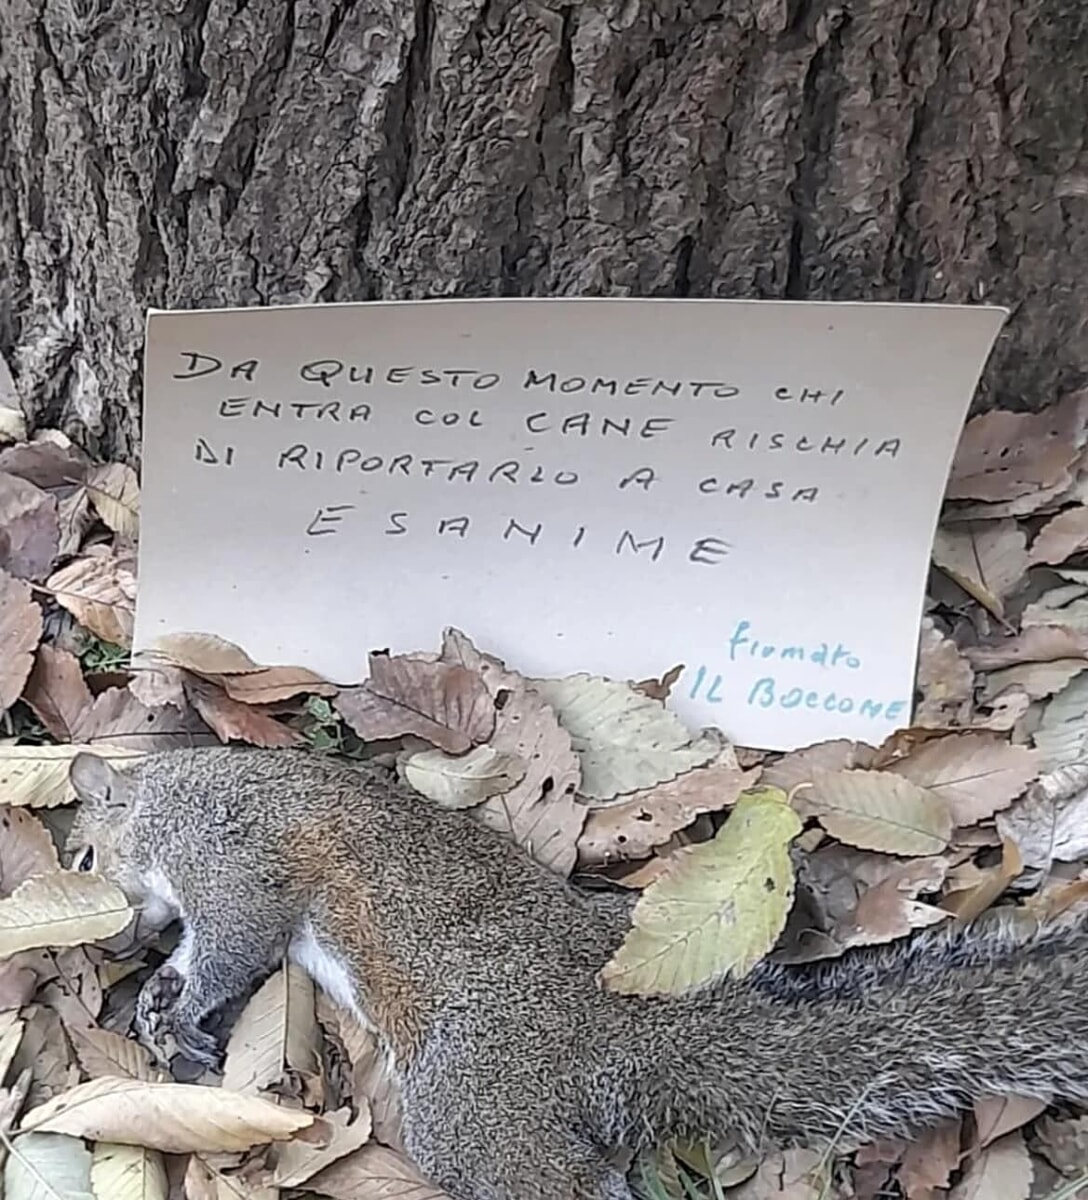 DA QUESTO MOMENTO CHI
ENTRA COL CANE RISCHIA
DI RIPORTARLO A CASA
ESANIME
firmato
IL BOCCONE